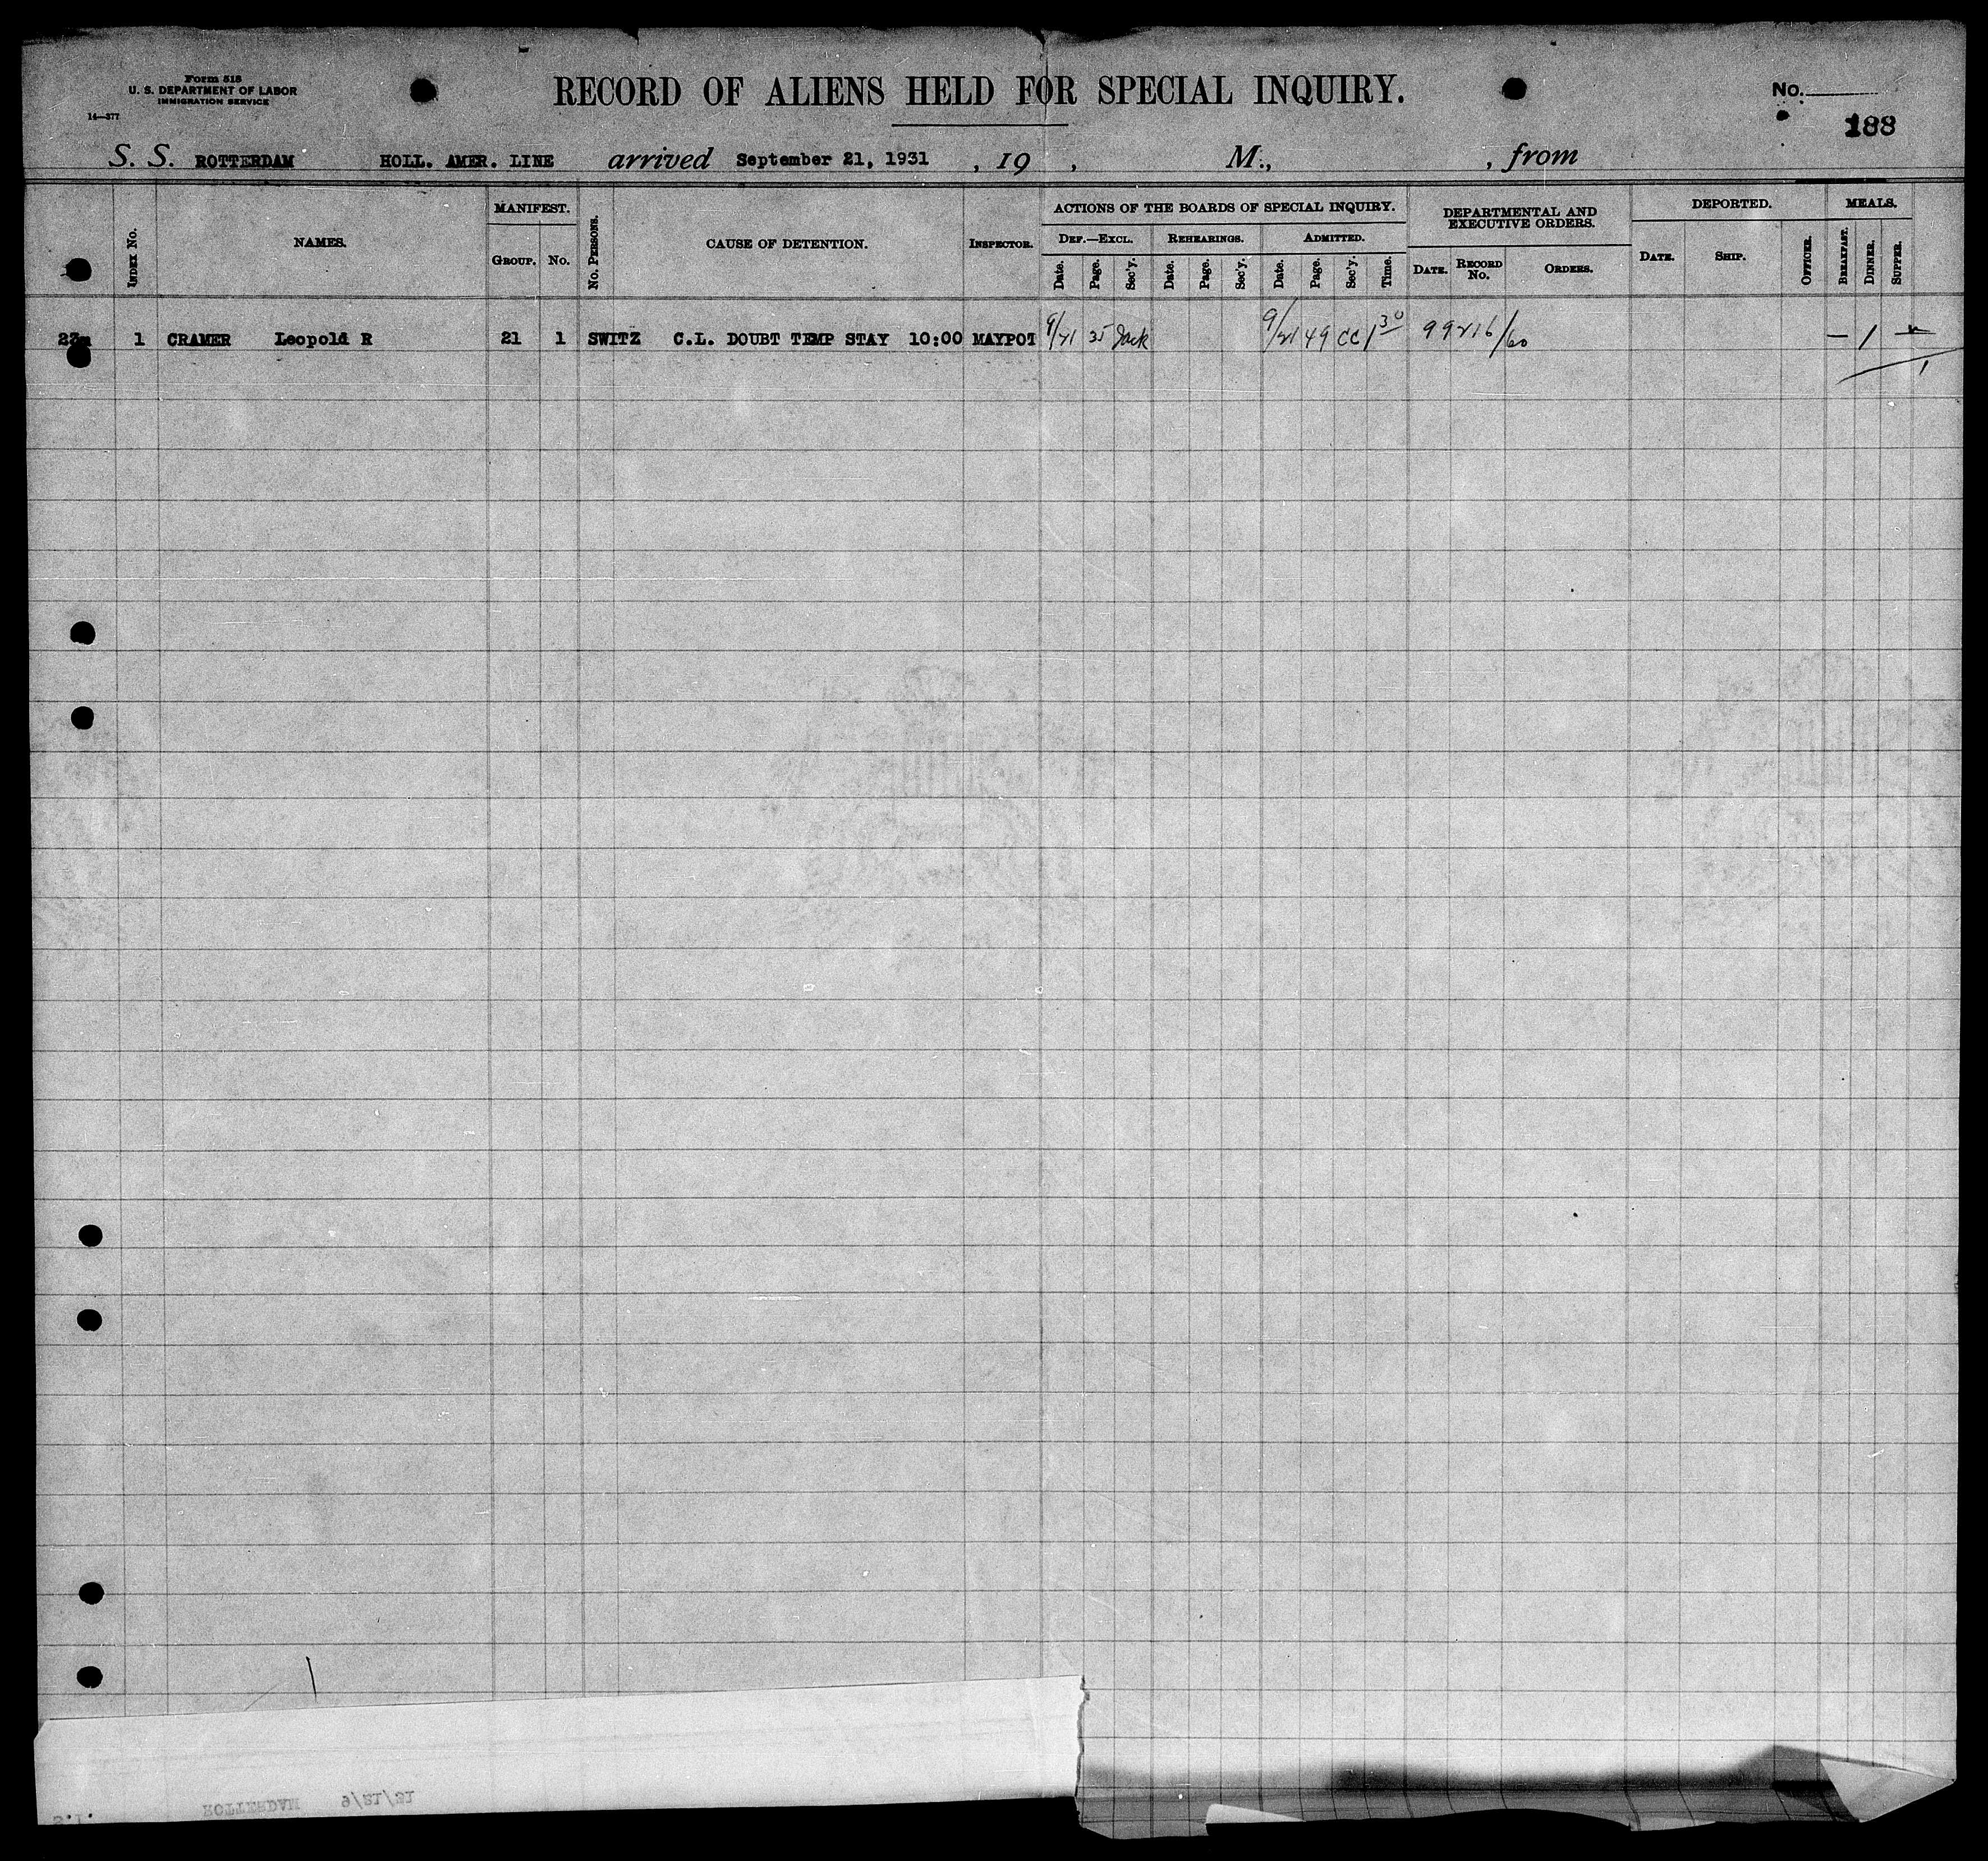 Form 518
U. S. DEPARTMENT OF LABOR
IMMIGRATION SERVICE
14—377
RECORD OF ALIENS HELD FOR SPECIAL INQUIRY.
No.
188
S. S. ROTTERDAM HOLL. AMER. LINE arrived September 21, 1931 , 19 , M., , from
INDEX No. NAMES. MANIFEST. GROUP. No. No. PERSONS. CAUSE OF DETENTION. INSPECTOR.
ACTIONS OF THE BOARDS OF SPECIAL INQUIRY.
DEF.—EXCL. REHEARINGS. ADMITTED.
Date. Page. Sec'y. Date. Page. Sec'y. Date. Page. Sec'y. Time.
DEPARTMENTAL AND
EXECUTIVE ORDERS.
DATE. RECORD No. ORDERS.
DEPORTED.
DATE. SHIP. OFFICER.
MEALS.
BREAKFAST. DINNER. SUPPER.
1 CRAMER Leopold R 21 1 SWITZ C.L. DOUBT TEMP STAY 10:00 MAYPOT 9/21 35 Jack 9/21 49 CC 1 30 99216/60 — 1 —
1
S.I. ROTTERDAM 9/21/31